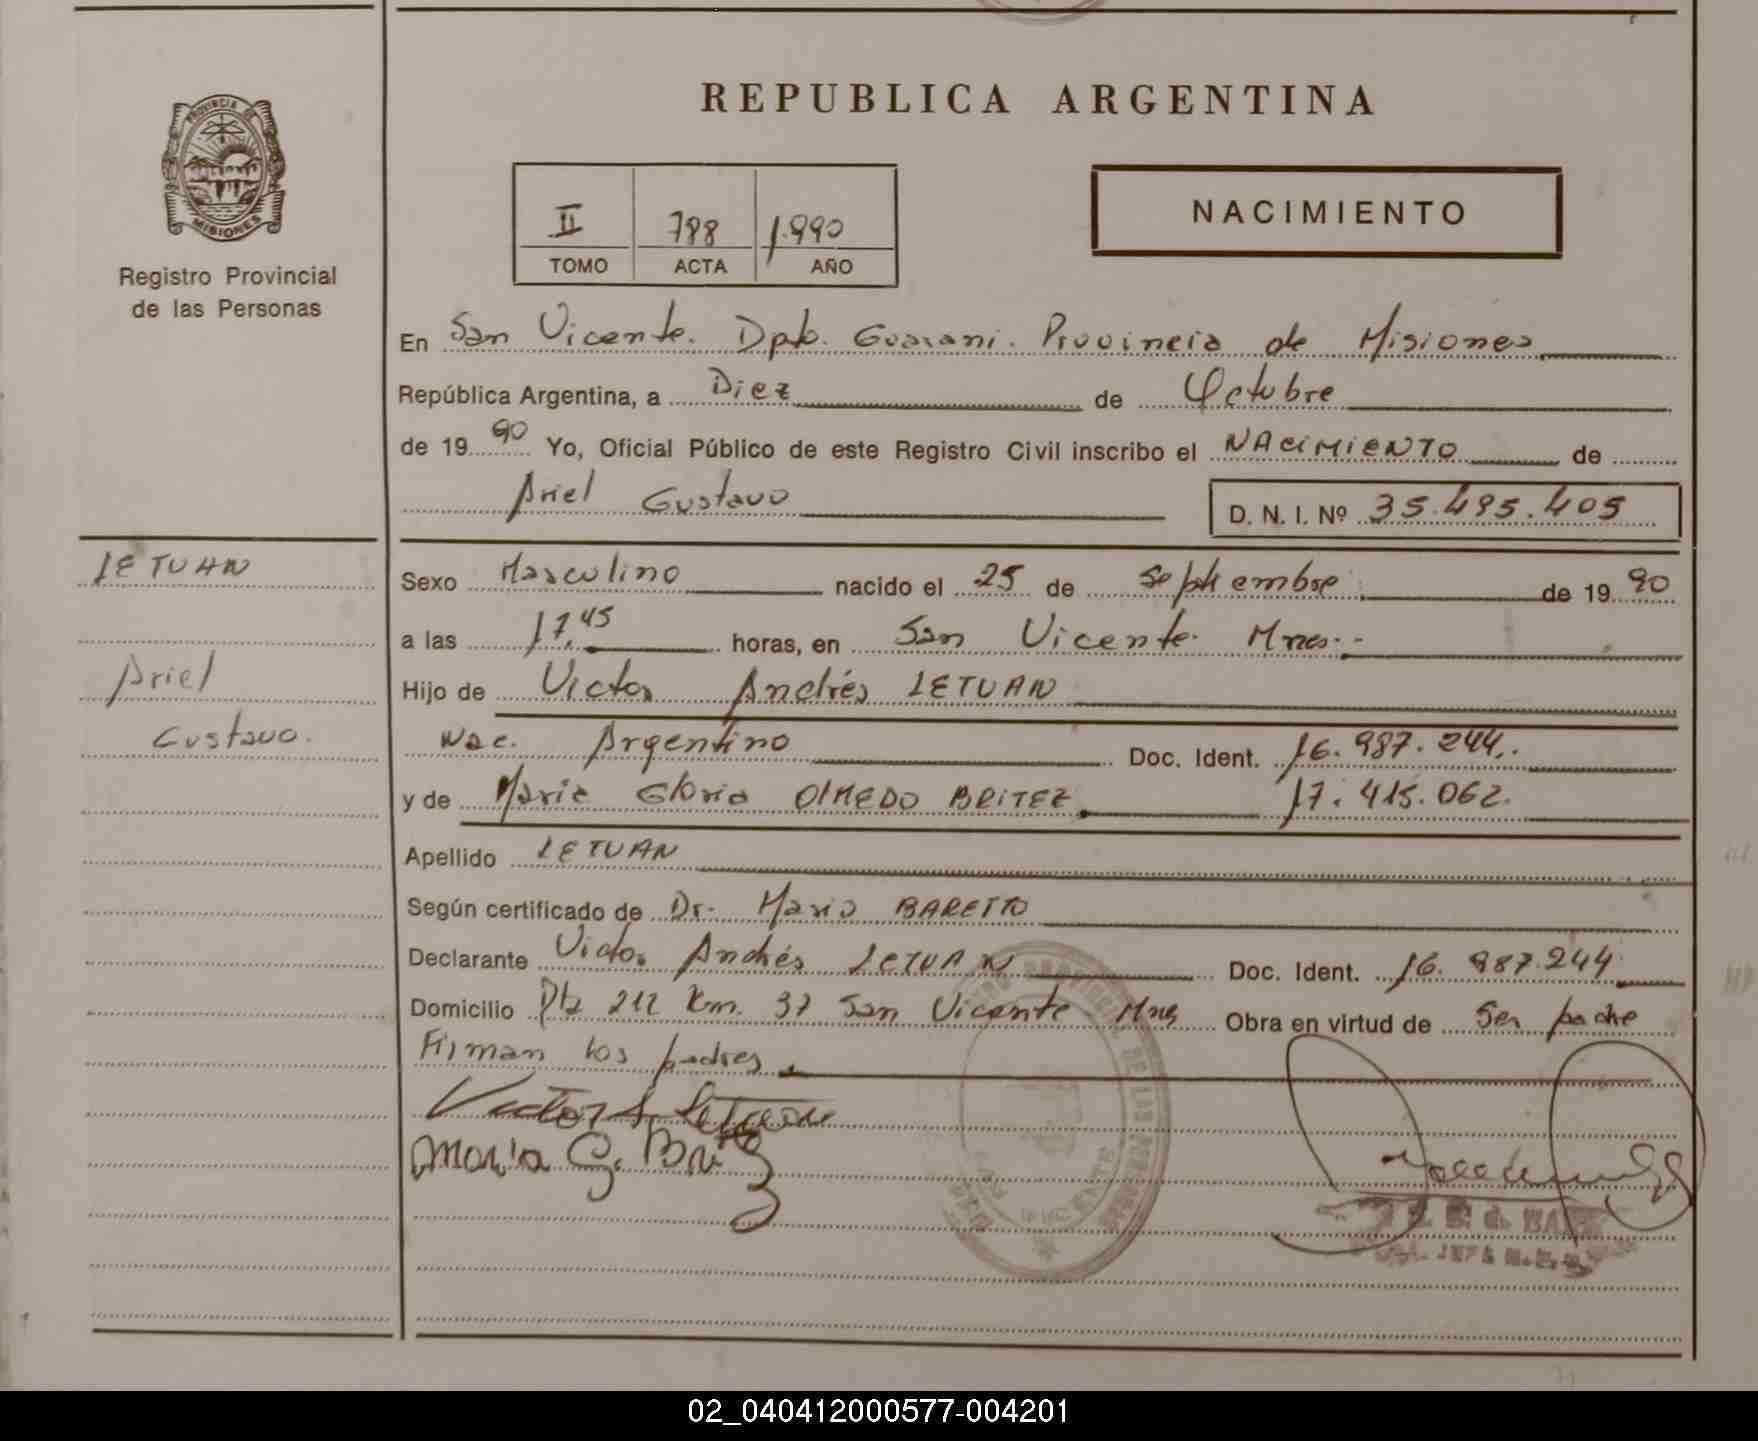 REPUBLICA ARGENTINA
PROVINCIA DE
MISIONES
Registro Provincial
de las Personas
II 788 1.990
TOMO ACTA AÑO
NACIMIENTO
En San Vicente. Dpto. Guarani. Provincia de Misiones
República Argentina, a Diez de Octubre
de 19 90 Yo, Oficial Público de este Registro Civil inscribo el NACIMIENTO de
Ariel Gustavo
D. N. I. Nº 35.495.405
LETUAN
Ariel
Gustavo.
Sexo Masculino nacido el 25 de Septiembre de 19 90
a las 17,45 horas, en San Vicente. Mnes.-
Hijo de Victor Andrés LETUAN
Nac. Argentino Doc. Ident. 16.987.244.
y de Maria Gloria OLMEDO BRITEZ 17.415.062.
Apellido LETUAN
Según certificado de Dr. Mario BARETTO
Declarante Victor Andrés LETUAN Doc. Ident. 16.987.244
Domicilio Km. 37 San Vicente Mnes Obra en virtud de Ser padre
Firman los padres
Victor A. Letuan
Maria G. Britez
02_040412000577-004201